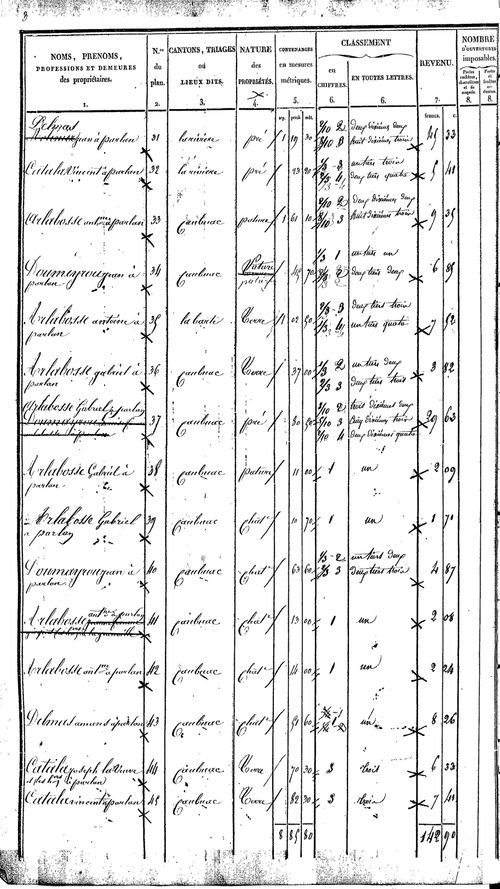 8
NOMS, PRENOMS,
PROFESSIONS ET DEMEURES
des propriétaires.
1.
N.os
du
plan.
2.
CANTONS, TRIAGES
ou
LIEUX DITS.
3.
NATURE
des
PROPRIÉTÉS.
4.
CONTENANCES
en mesures
métriques.
5.
CLASSEMENT
en
CHIFFRES.
6.
EN TOUTES LETTRES.
6.
REVENU.
7.
francs. c.
NOMBRE
D'OUVERTURES
imposables.
8. 8.
Delmas
jean à parlan 31 la riviere pré 1 19 30 2/10 2 deux dixiemes deux
8/10 3 huit dixiemes trois 33
Catala vincent à parlan 32 la riviere pré 23 20 1/3 3 un tiers trois
2/3 4 deux tiers quatre 5 41
2/10 2 deux dixiemes deux
Arlabosse ant.ne à parlan 33 Caulnac pature 1 61 10 8/10 3 huit dixiemes trois 9 35
Pature 1/3 1 un tiers un
Doumayrou jean à 34 Caulnac 70 2/3 2 deux tiers deux 6 89
parlan
2/3 3 deux tiers trois
Arlabosse antoine à 35 Terre 1 02 50 1/3 4 un tiers quatre 7 52
parlan
Arlabosse gabriel à 36 Caulnac Terre 37 00 1/3 2 un tiers deux 3 82
parlan 2/3 3 deux tiers trois
Arlabosse Gabriel à parlan 37 Caulnac pré 80 50 3/10 2 trois dixiemes deux
5/10 3 cinq dixiemes trois 29 63
2/10 4 deux dixiemes quatre
Arlabosse Gabriel à 38 Caulnac pature 11 00 1 un 2 09
parlan
Arlabosse Gabriel 39 Caulnac chat.e 10 70 1 un 1 70
à parlan
Doumayrou jean à 40 Caulnac chat.e 63 60 1/3 2 un tiers deux
parlan 2/3 3 deux tiers trois 4 87
Arlabosse ant.ne à parlan 41 Caulnac chat.e 13 00 1 un 2 08
Arlabosse ant.ne à parlan 42 Caulnac chat.e 14 00 1 un 2 24
Delmas amans à parlan 43 Caulnac chat.e 51 60 un 8 26
Catala joseph la veuve 44 Caulnac Terre 70 30 3 trois 6 33
à parlan
Catala vincent à parlan 45 Caulnac Terre 82 30 3 trois 7 41
8 85 80 142 90